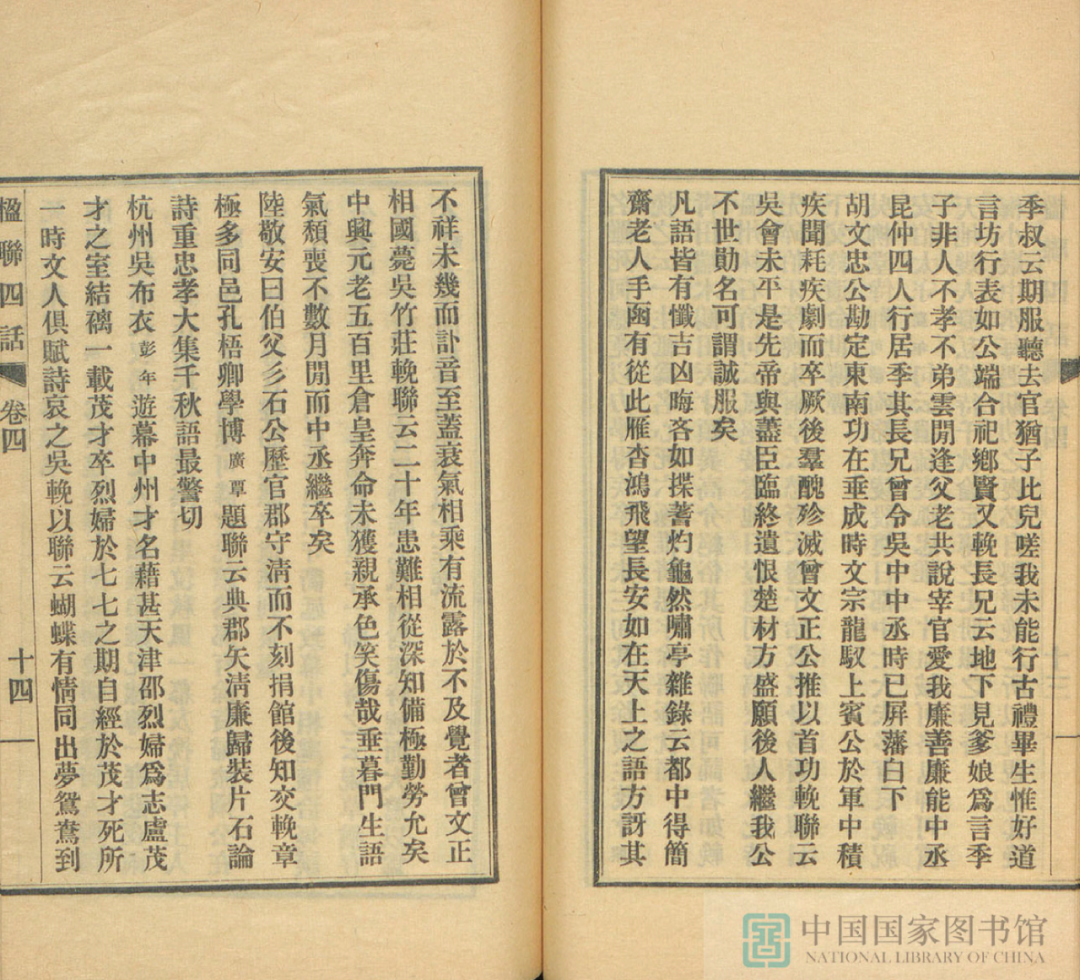 季叔云期服聽去官猶子比兒嗟我未能行古禮畢生惟好道
言坊行表如公端合祀鄉賢又輓長兄云地下見爹娘爲言季
子非人不孝不弟雲閒逢父老共說宰官愛我廉善廉能中丞
昆仲四人行居季其長兄曾令吳中中丞時已屏藩白下
胡文忠公勘定東南功在垂成時文宗龍馭上賓公於軍中積
疾聞耗疾劇而卒厥後羣醜殄滅曾文正公推以首功輓聯云
吳會未平是先帝與藎臣臨終遺恨楚材方盛願後人繼我公
不世勛名可謂誠服矣
凡語皆有懺吉凶晦吝如揲蓍灼龜然嘯亭雜錄云都中得簡
齋老人手函有從此雁杳鴻飛望長安如在天上之語方訝其
不祥未幾而訃音至蓋衰氣相乘有流露於不及覺者曾文正
相國薨吳竹莊輓聯云二十年患難相從深知備極勤勞允矣
中興元老五百里倉皇奔命未獲親承色笑傷哉垂暮門生語
氣頹喪不數月閒而中丞繼卒矣
陸敬安曰伯父彡石公歷官郡守淸而不刻捐館後知交輓章
極多同邑孔梧卿學博廣覃題聯云典郡矢淸廉歸裝片石論
詩重忠孝大集千秋語最警切
杭州吳布衣彭年遊幕中州才名藉甚天津邵烈婦爲志盧茂
才之室結褵一載茂才卒烈婦於七七之期自經於茂才死所
一時文人俱賦詩哀之吳輓以聯云蝴蝶有情同出夢鴛鴦到
楹聯四話 卷四 十四
中国国家图书馆
NATIONAL LIBRARY OF CHINA